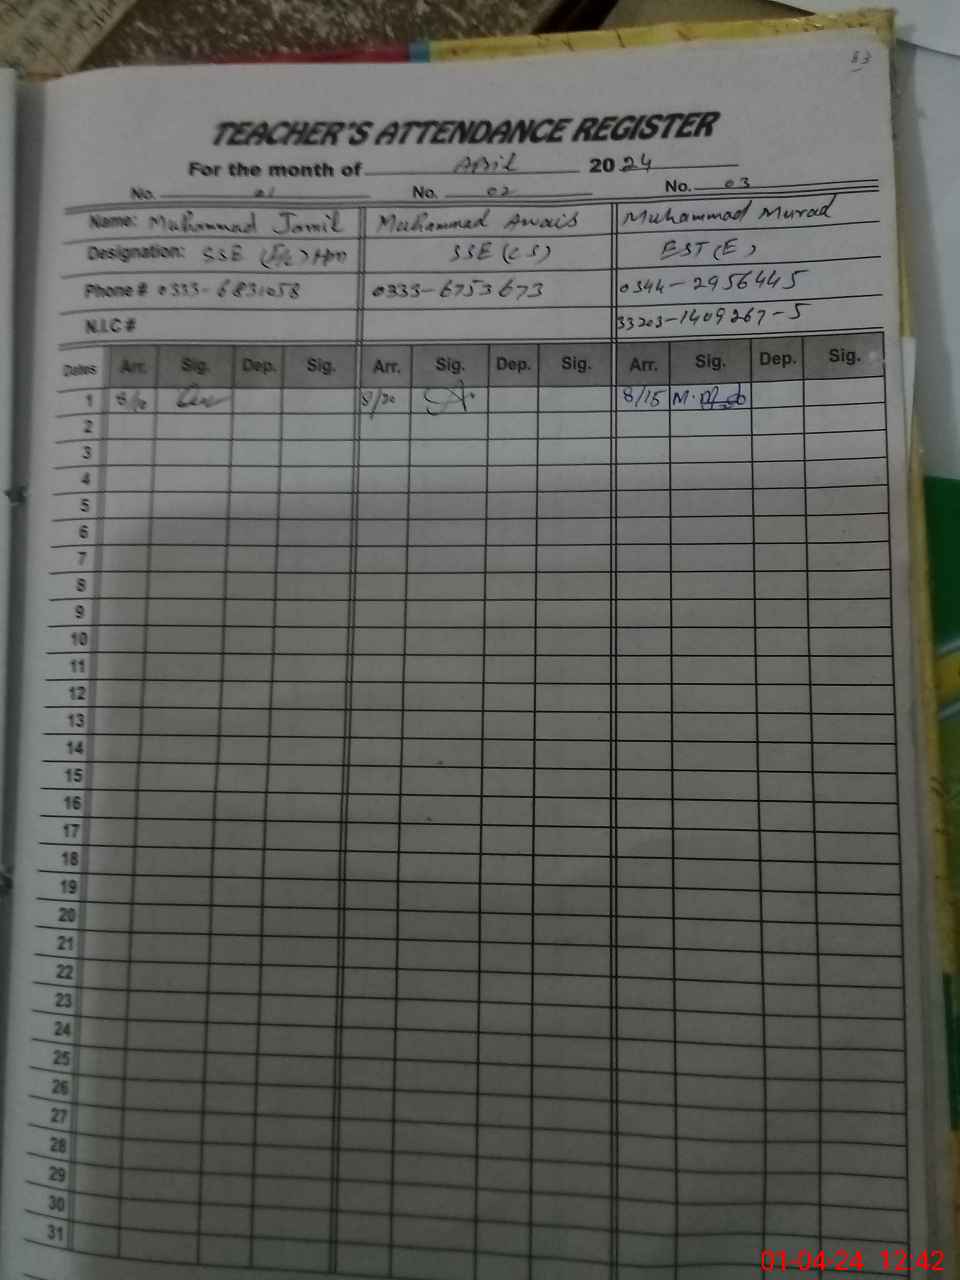 83
TEACHER'S ATTENDANCE REGISTER
For the month of April 2024
No. 01 No. 02 No. 03
Name: Muhammad Jamil Muhammad Awais Muhammad Murad
Designation: SSE SSE (CS) EST (E)
Phone # 0333-6831058 0333-6753673 0344-2956445
N.I.C # 33203-1409267-5
Dates Arr. Sig. Dep. Sig. Arr. Sig. Dep. Sig. Arr. Sig. Dep. Sig.
1 8/20 8/15
2
3
4
5
6
7
8
9
10
11
12
13
14
15
16
17
18
19
20
21
22
23
24
25
26
27
28
29
30
31
01-04-24 12:42